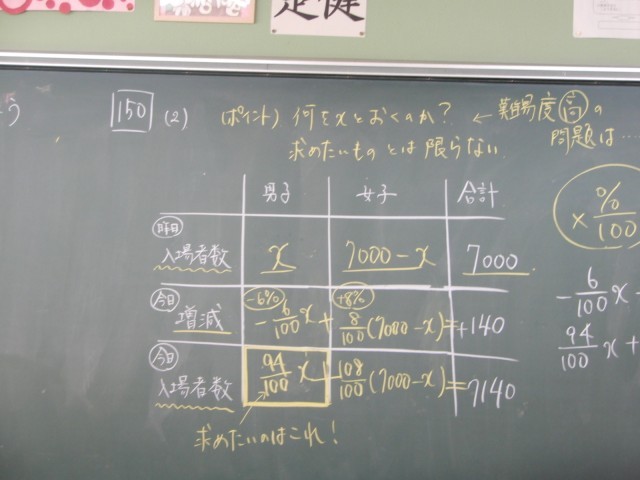 150 (2) (ポイント) 何をxとおくのか? ← 難易度高の
求めたいものとは限らない 問題は…
男子 女子 合計
昨日
入場者数 x 7000-x 7000
今日 -6% +8%
増減 -6/100x + 8/100(7000-x) = +140
今日
入場者数 94/100x + 108/100(7000-x) = 7140
求めたいのはこれ!
× %/100
-6/100x
94/100x +